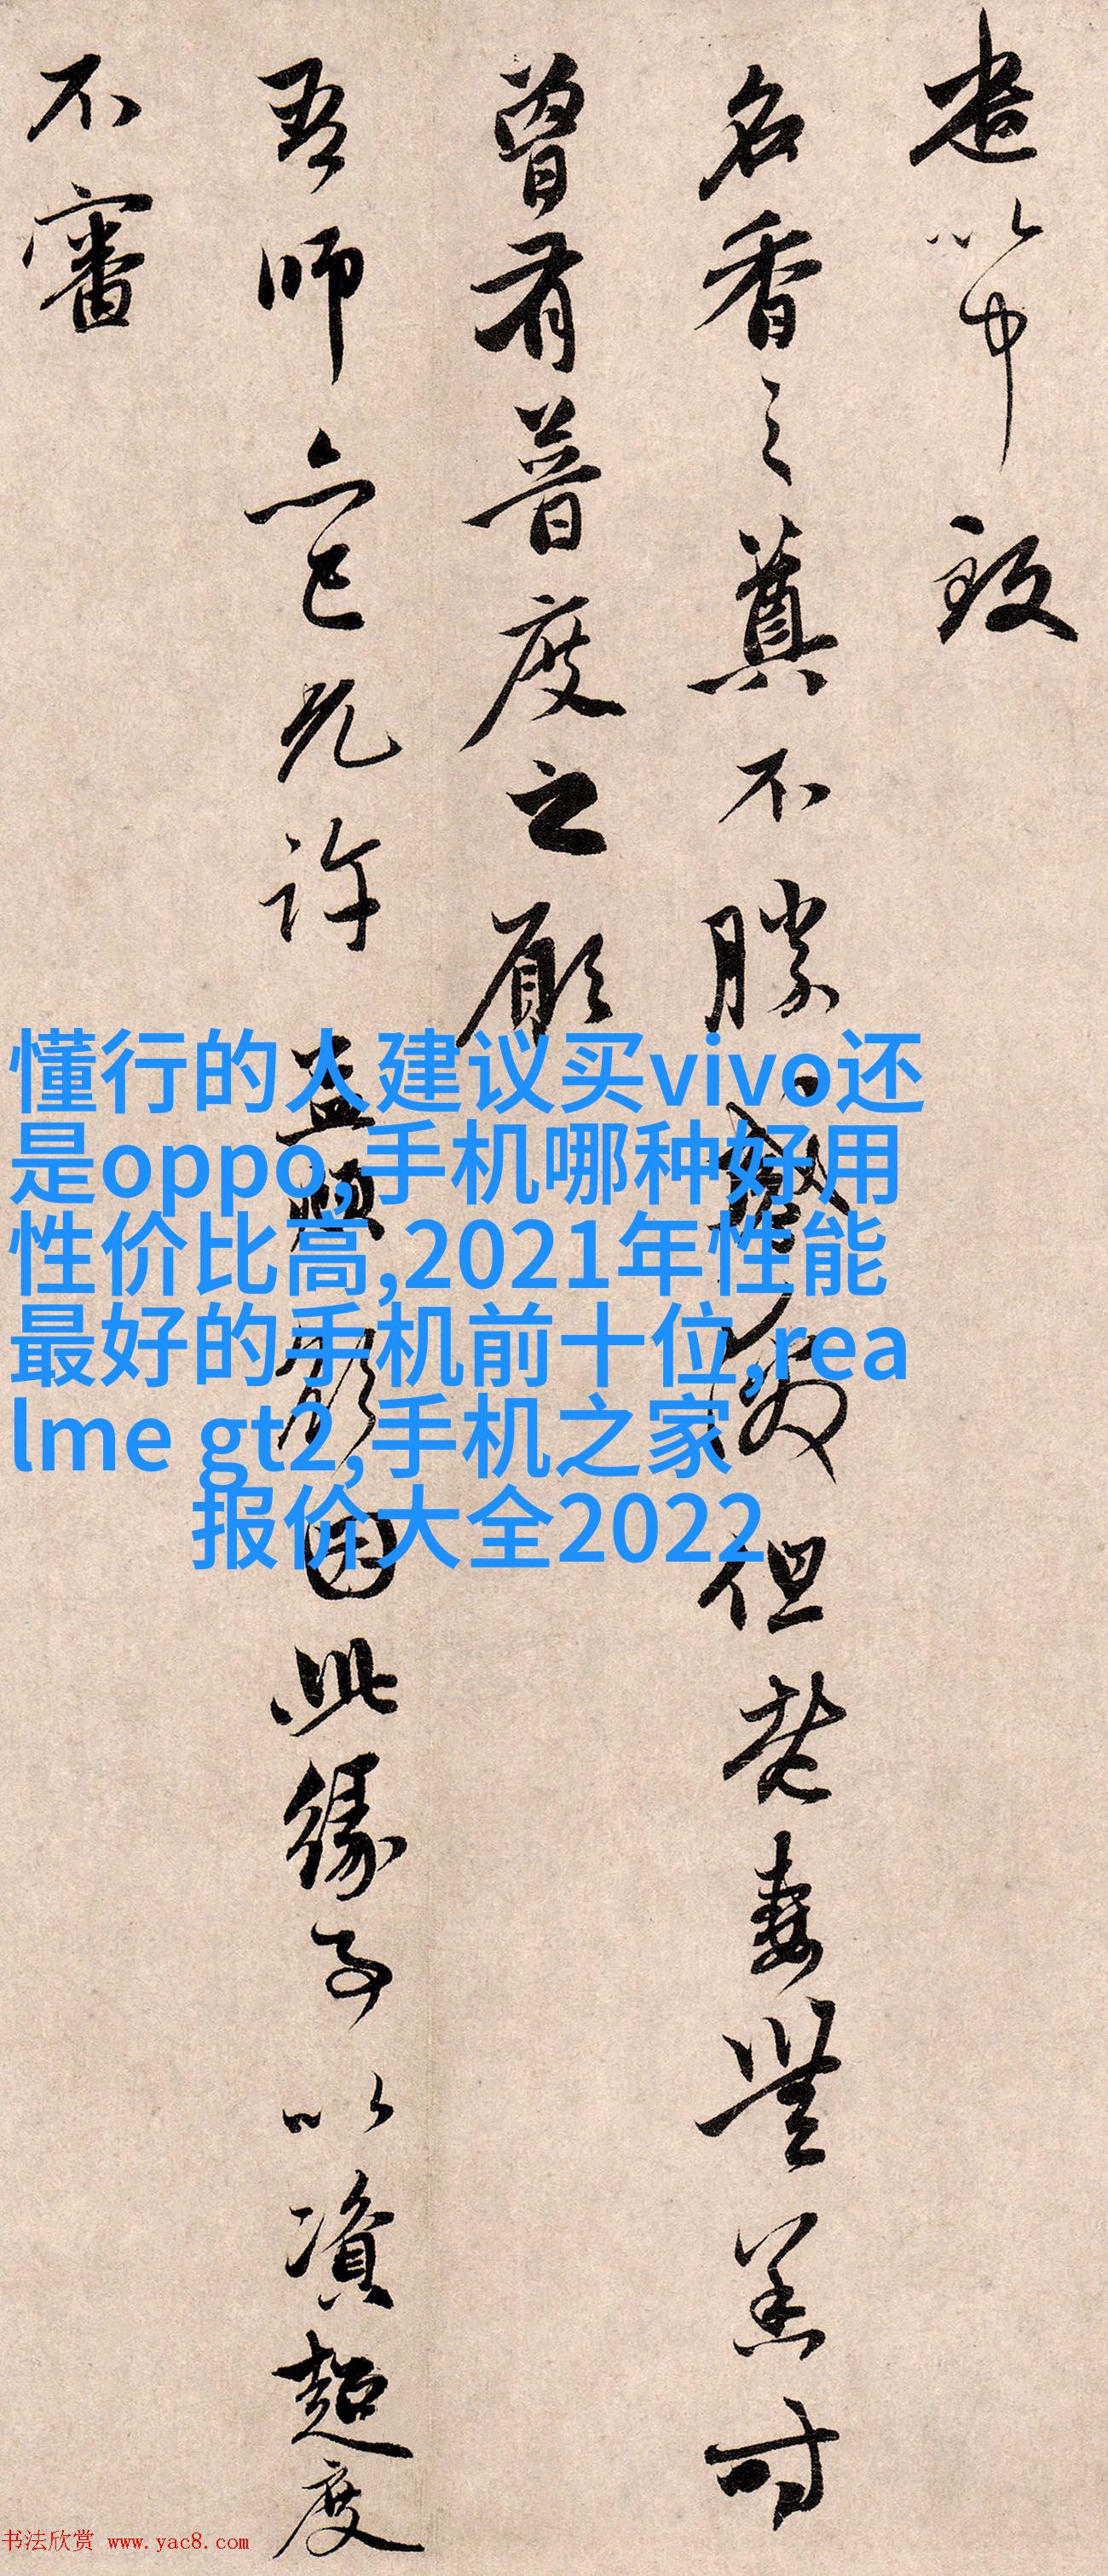 遣以中致
名香之奠不勝感激但老妻無恙時
曾有普度之願
吾師亦已允許孟頫欲因此緣子以資超度
不審
懂行的人建议买vivo还
是oppo,手机哪种好用
性价比高,2021年性能
最好的手机前十位,rea
lme gt2,手机之家
报价大全2022
书法欣赏 www.yac8.com